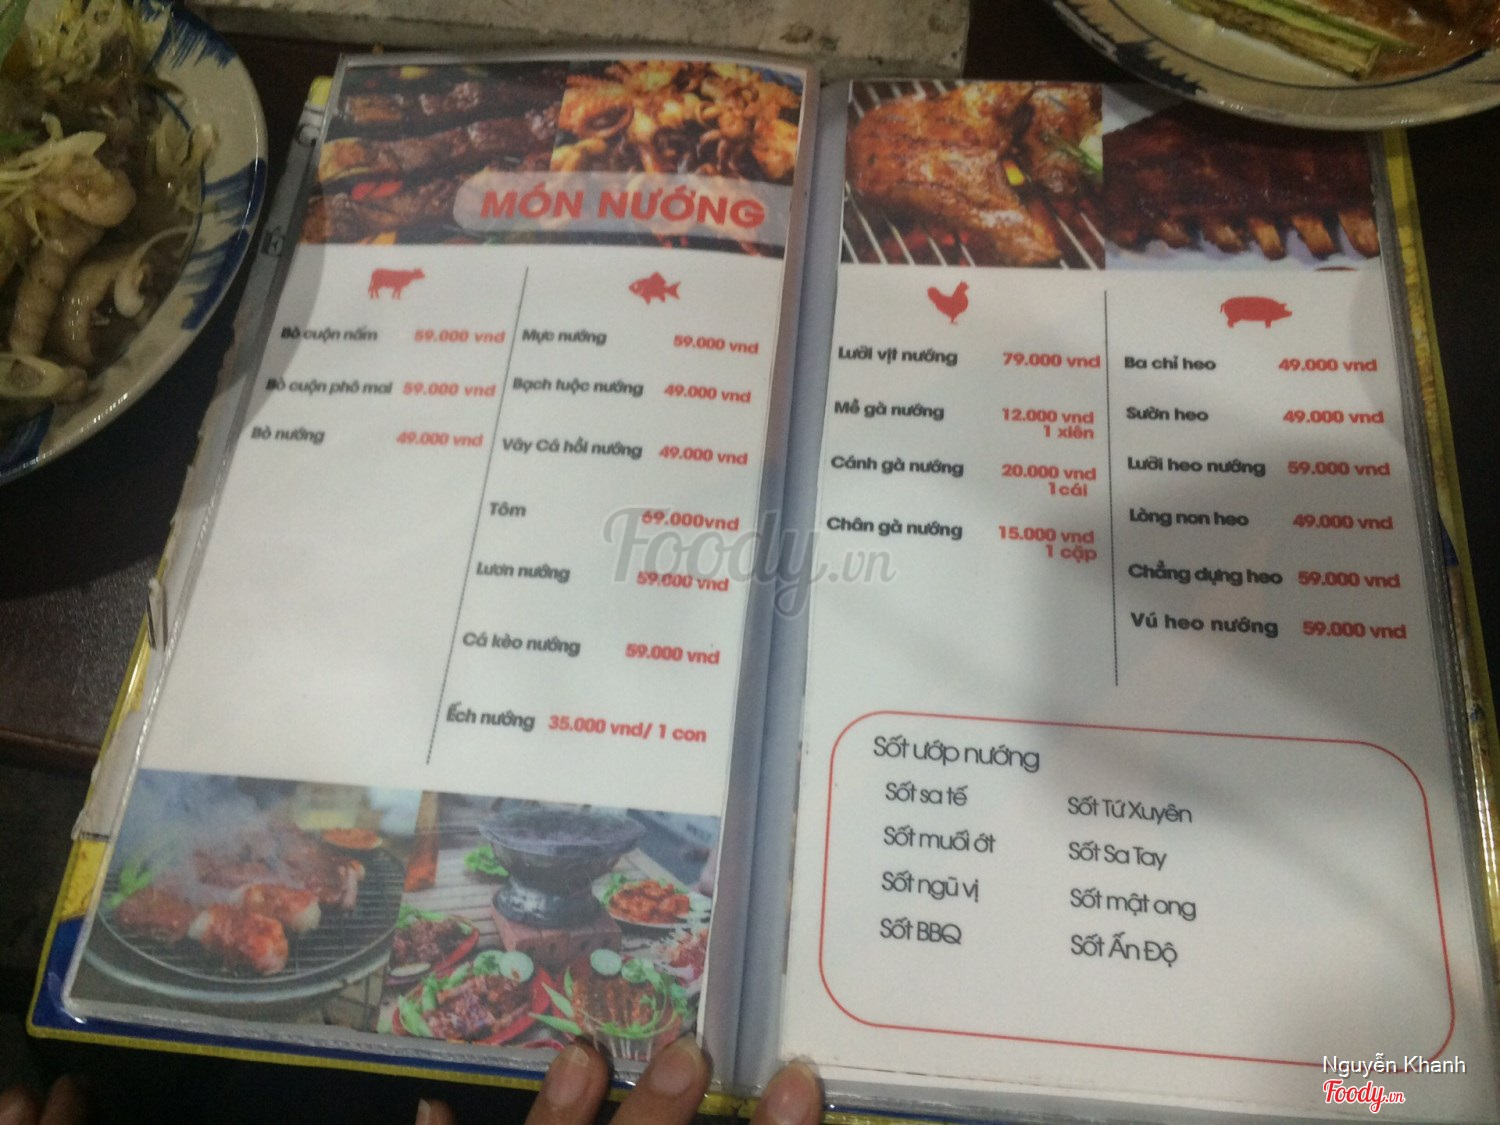 MÓN NƯỚNG
Bò cuộn nấm 59.000 vnd
Bò cuộn phô mai 59.000 vnd
Bò nướng 49.000 vnd
Mực nướng 59.000 vnd
Bạch tuộc nướng 49.000 vnd
Vây Cá hồi nướng 49.000 vnd
Tôm 69.000vnd
Lươn nướng 59.000 vnd
Cá kèo nướng 59.000 vnd
Ếch nướng 35.000 vnd/ 1 con
Lưỡi vịt nướng 79.000 vnd
Mề gà nướng 12.000 vnd
1 xiên
Cánh gà nướng 20.000 vnd
1 cái
Chân gà nướng 15.000 vnd
1 cặp
Ba chỉ heo 49.000 vnd
Sườn heo 49.000 vnd
Lưỡi heo nướng 59.000 vnd
Lòng non heo 49.000 vnd
Chẳng dựng heo 59.000 vnd
Vú heo nướng 59.000 vnd
Sốt ướp nướng
Sốt sa tế
Sốt muối ớt
Sốt ngũ vị
Sốt BBQ
Sốt Tứ Xuyên
Sốt Sa Tay
Sốt mật ong
Sốt Ấn Độ
Foody.vn
Nguyễn Khanh
Foody.vn